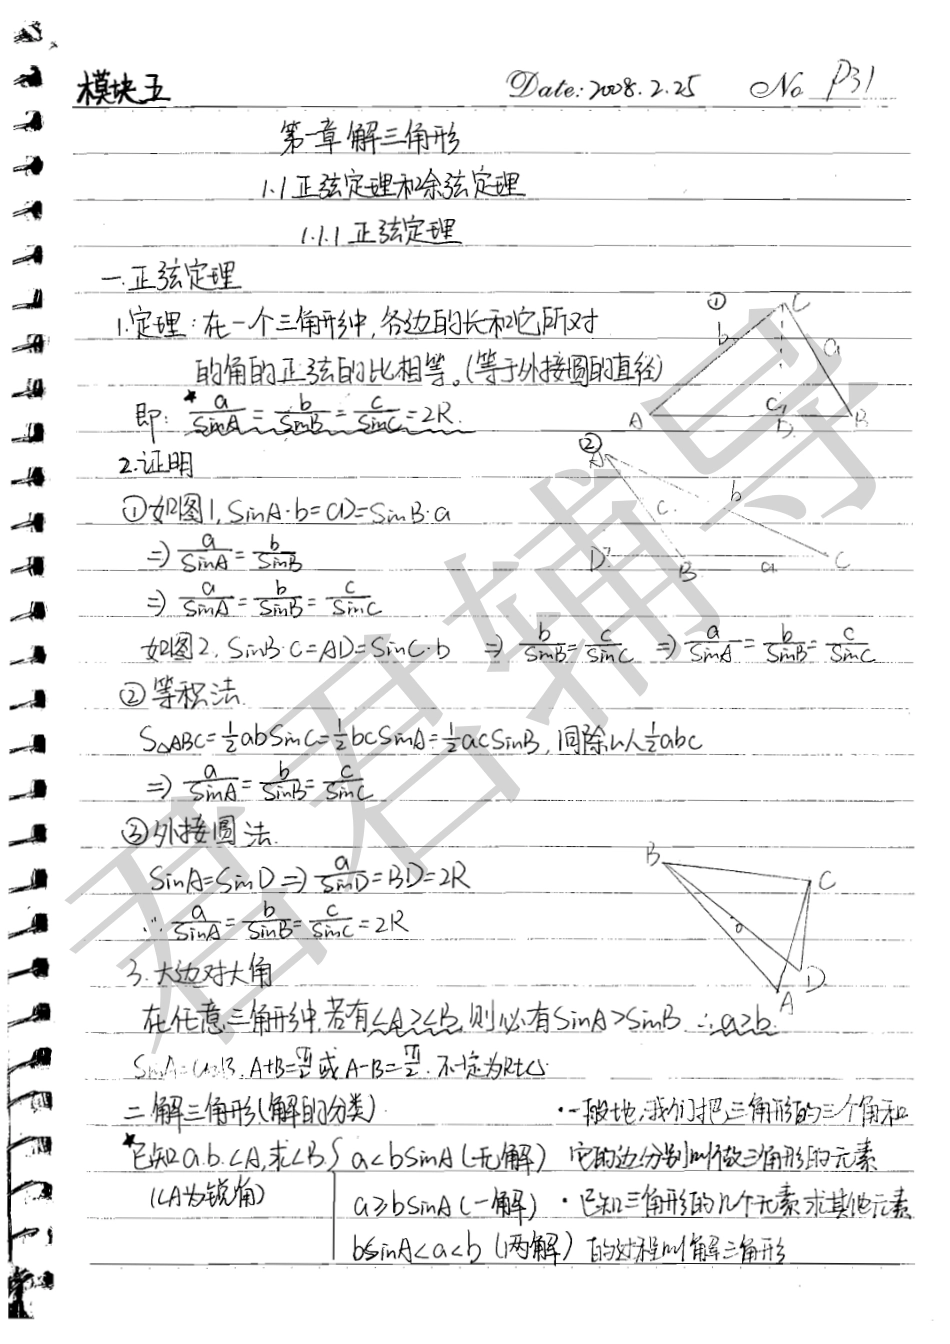 模块五 Date: 2008.2.25 No P31
第一章 解三角形
1.1 正弦定理和余弦定理
1.1.1 正弦定理
一.正弦定理
1.定理:在一个三角形中,各边的长和它所对
的角的正弦的比相等。(等于外接圆的直径)
即: ★ a/SinA = b/SinB = c/SinC = 2R.
① C b a A c D B
2.证明
①如图1, SinA·b=CD=SinB·a
⇒ a/SinA = b/SinB
⇒ a/SinA = b/SinB = c/SinC
② A b c D B a C
如图2, SinB·c=AD=SinC·b ⇒ b/SinB = c/SinC ⇒ a/SinA = b/SinB = c/SinC
②等积法.
S△ABC=½abSinC=½bcSinA=½acSinB, 同除以½abc
⇒ a/SinA = b/SinB = c/SinC
③外接圆法.
SinA=SinD ⇒ a/SinD = BD = 2R
∴ a/SinA = b/SinB = c/SinC = 2R
B C D A
3.大边对大角
在任意三角形中,若有∠A≥∠B,则必有SinA>SinB ∴a≥b.
SinA=CosB, A+B=π/2 或 A-B=π/2. 不一定为Rt△
二.解三角形(解的分类)
★已知a.b.∠A,求∠B.
(∠A为锐角)
a<bSinA (无解)
a≥bSinA (一解)
bSinA<a<b (两解)
·一般地,我们把三角形的三个角和
它的边分别叫做三角形的元素
·已知三角形的几个元素求其他元素
的过程叫解三角形
君君辅导